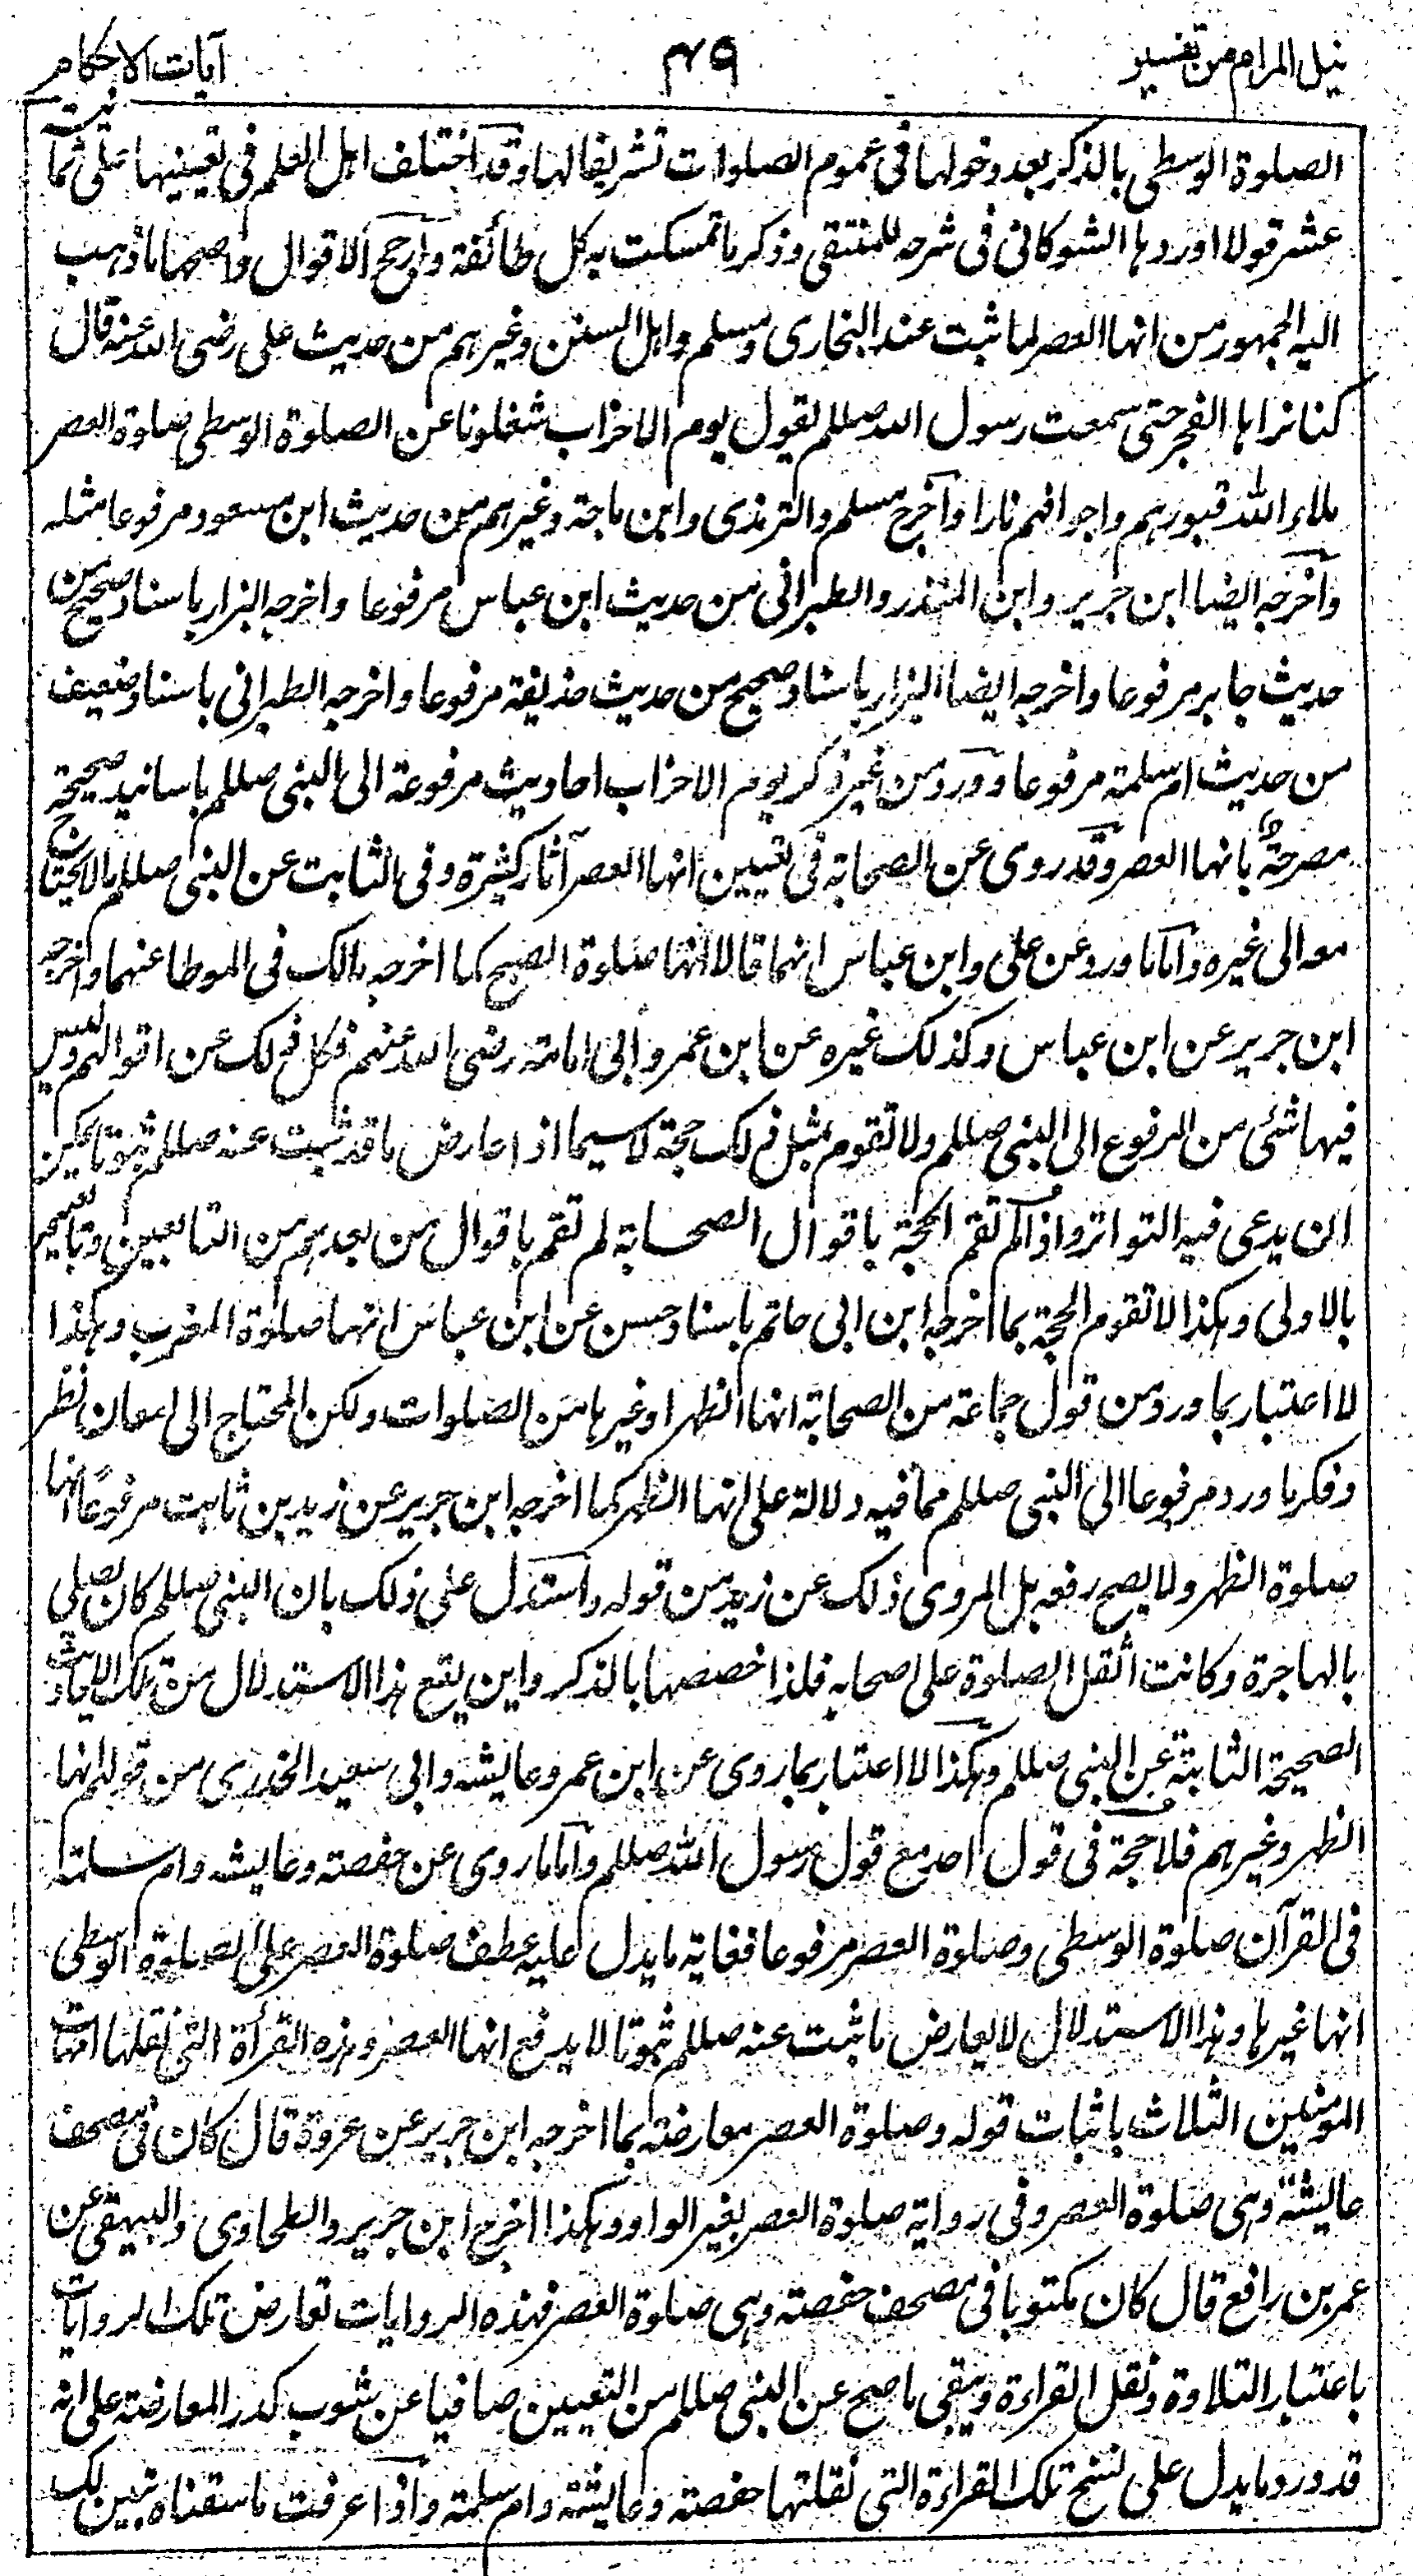 نيل المرام من تفسير
٤٩
آيات الاحكام
الصلوة الوسطى بالذكر بعد دخولها في عموم الصلوات تشريفا لها وقد اختلف اهل العلم في تعيينها على ثمانية
عشر قولا اوردها الشوكاني في شرحه للمنتقى وذكر ما تمسكت به كل طائفة وارجح الاقوال واصحها ما ذهب
اليه الجمهور من انها العصر لما ثبت عند البخاري ومسلم واهل السنن وغيرهم من حديث علي رضي الله عنه قال
كنا نراها الفجر حتى سمعت رسول الله صللم يقول يوم الاحزاب شغلونا عن الصلوة الوسطى صلوة العصر
ملاء الله قبورهم واجوافهم نارا وأخرج مسلم والترمذي وابن ماجة وغيرهم من حديث ابن مسعود مرفوعا مثله
وأخرجه ايضا ابن جرير وابن المنذر والطبراني من حديث ابن عباس مرفوعا واخرجه البزار باسناد صحيح من
حديث جابر مرفوعا واخرجه ايضا البزار باسناد صحيح من حديث حذيفة مرفوعا واخرجه الطبراني باسناد ضعيف
من حديث ام سلمة مرفوعا وورد من غير ذكر يوم الاحزاب احاديث مرفوعة الى النبي صللم باسانيد صحيحة
مصرحة بانها العصر وقد روى عن الصحابة في تعيين انها العصر آثار كثيرة وفي الثابت عن النبي صللم ما لا يحتاج
معه الى غيره وأما ما ورد عن علي وابن عباس انهما قالا انها صلوة الصبح كما اخرجه مالك في الموطا عنهما واخرجه
ابن جرير عن ابن عباس وكذلك غيره عن ابن عمر وابي امامة رضي الله عنهم فكل ذلك من اقوالهم وليس
فيها شئى من المرفوع الى النبي صللم ولا تقوم بمثل ذلك حجة لا سيما اذا عارض ما قد ثبت عنه صللم ثبوتا يمكن
ان يدعى فيه التواتر واذا لم تقم الحجة باقوال الصحابة لم تقم باقوال من بعدهم من التابعين وتابعيهم
بالاولى وهكذا لا تقوم الحجة بما اخرجه ابن ابي حاتم باسناد حسن عن ابن عباس انها صلوة المغرب وهكذا
لا اعتبار بما ورد من قول جماعة من الصحابة انها الظهر او غيرها من الصلوات ولكن المحتاج الى امعان نظر
وفكر ما ورد مرفوعا الى النبي صللم مما فيه دلالة على انها الظهر كما اخرجه ابن جرير عن زيد بن ثابت مرفوعًا انها
صلوة الظهر ولا يصح رفعه بل المروي ذلك عن زيد من قوله واستدل على ذلك بان النبي صللم كان يصلي
بالهاجرة وكانت اثقل الصلوة على اصحابه فلذا خصصها بالذكر واين يقع هذا الاستدلال من تلك الاحاديث
الصحيحة الثابتة عن النبي صللم وهكذا لا اعتبار بما روى عن ابن عمر وعايشه وابي سعيد الخدري من قولهم انها
الظهر وغيرهم فلا حجة في قول احد مع قول رسول الله صللم وأما ما روى عن حفصة وعايشه وام سلمة
في القرآن صلوة الوسطى وصلوة العصر مرفوعا فغاية ما يدل عليه عطف صلوة العصر على الصلوة الوسطى
انها غيرها وهذا الاستدلال لا يعارض ما ثبت عنه صللم ثبوتا لا يدفع انها العصر وهذه القرأة التي نقلها امهات
المومنين الثلاث باثبات قوله وصلوة العصر معارضة بما اخرجه ابن جرير عن عروة قال كان في مصحف
عايشة وهي صلوة العصر وفي رواية صلوة العصر بغير الواو وهكذا اخرج ابن جرير والطحاوي والبيهقي عن
عمر بن رافع قال كان مكتوبا في مصحف حفصة وهي صلوة العصر فهذه الروايات تعارض تلك الروايات
باعتبار التلاوة ونقل القراءة ويبقى ما صح عن النبي صللم من التعيين صافيا عن شوب كدر المعارضة على انه
قد ورد ما يدل على نسخ تلك القراءة التي نقلتها حفصة وعايشة وام سلمة واذا عرفت ما سقناه تبين لك